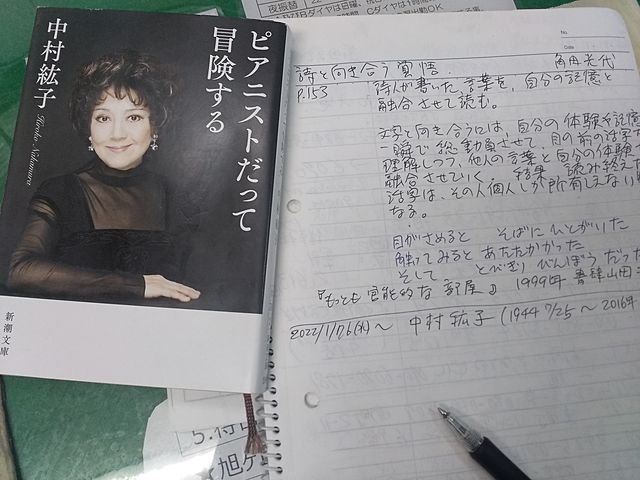 ピアニストだって
冒険する
中村紘子
Hiroko Nakamura
新潮文庫
夜振替
No.
Date
詩と向き合う覚悟. 角田光代
P.153 詩人が書いた言葉を、自分の記憶と
融合させて読む。
文字と向き合うには、自分の体験や記憶
一瞬で総動員させて、目の前の活字
理解しつつ、他人の言葉と自分の体験
融合させていく. 結果、読み終え
活字は、その人個人しか所有しえない
なる。
目がさめると そばに ひとがいた
触ってみると あたたかかった
そして、 とびきり びんぼう だった
『もっとも官能的な部屋』 1999年 書肆山田
2022/1/26(水)～ 中村紘子 (1944 7/25 ～ 2016年
旭ケ